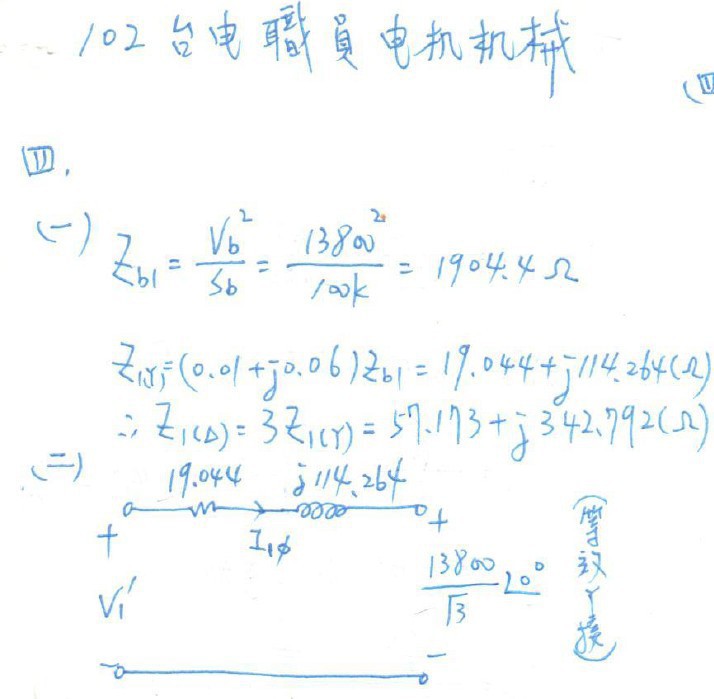 102 台电職員电机机械
(四
四.
(一) Zb1 = Vb²/Sb = 13800²/100k = 1904.4 Ω
Z1(Y)=(0.01+j0.06)Zb1 = 19.044+j114.264(Ω)
∴ Z1(Δ)= 3Z1(Y) = 57.173+j342.792(Ω)
(二)
19.044 j114.264
+ I1φ +
V1' 13800/√3 ∠0°
- -
(等效Y接)